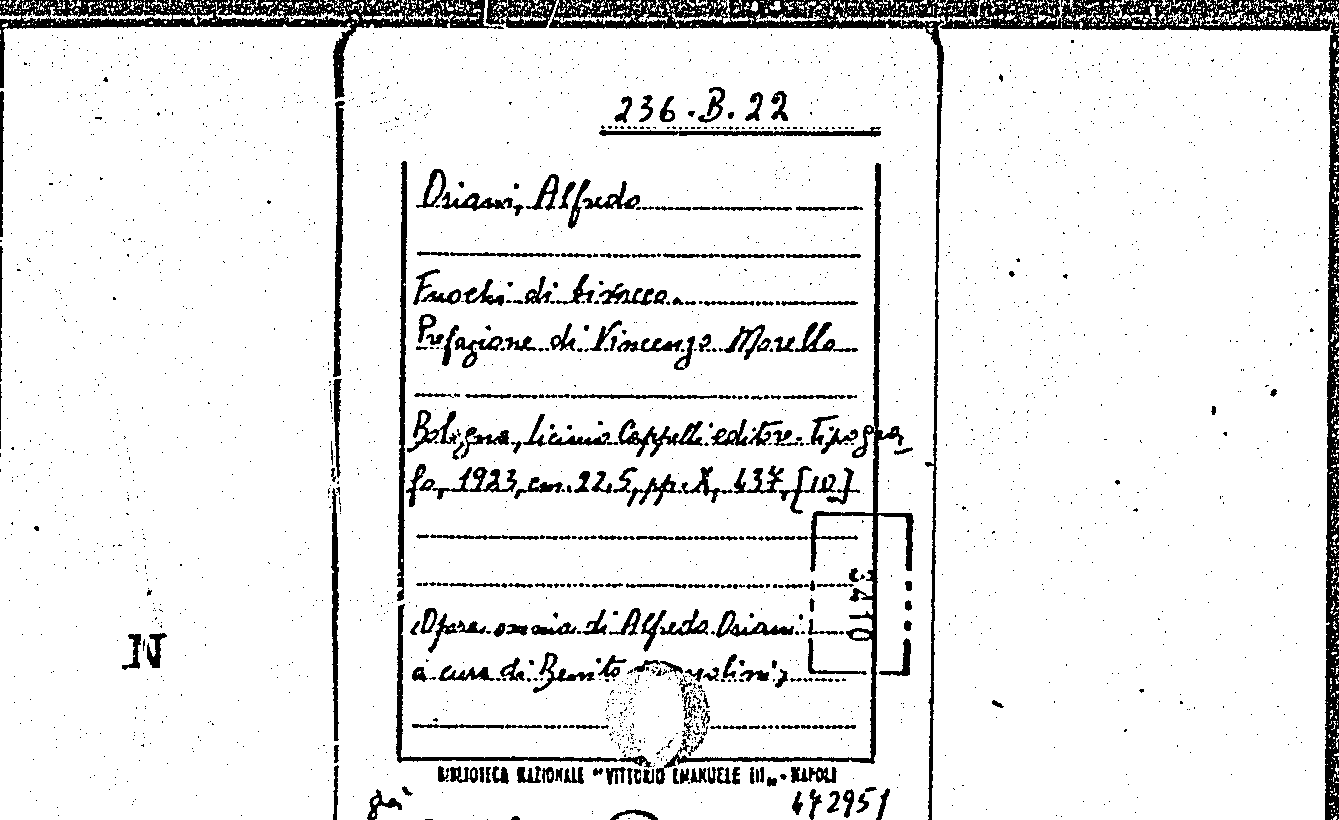 236.B.22
Oriani, Alfredo
Fuochi di bivacco.
Prefazione di Vincenzo Morello
Bologna, Licinio Cappelli editore-Tipogra
fo, 1923, cm.22.5, pp.X, 437, [10]
3410
Opera omnia di Alfredo Oriani
a cura di Benito
N
BIBLIOTECA NAZIONALE "VITTORIO EMANUELE III„ - NAPOLI
già
472951